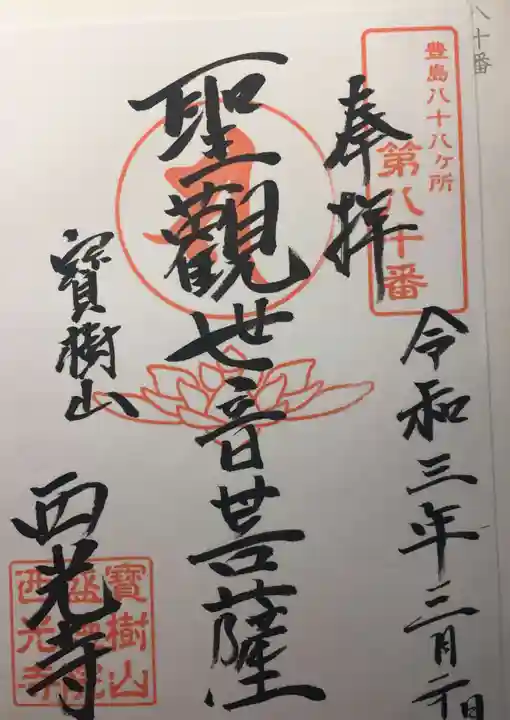 八十番
豊島八十八ヶ所
第八十番
奉拝
令和三年三月二十日
聖觀世音菩薩
寳樹山
西光寺
寳樹山
西光寺